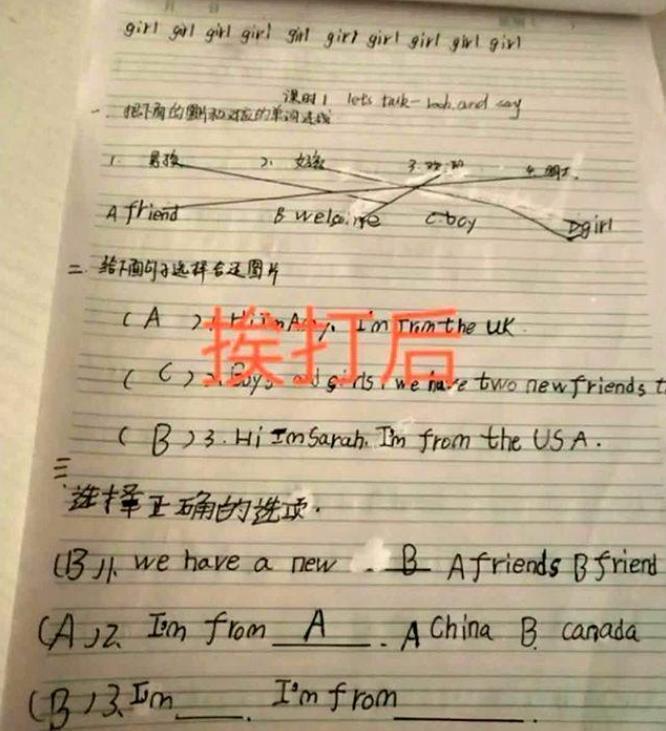 girl girl girl girl girl girl girl girl girl girl
课时1 let's talk-look and say
一. 把下面的图片和对应的单词连线
1. 男孩 2. 女孩 3. 欢迎 4. 朋友.
A friend B welcome C boy D girl
二. 给下面句子选择合适图片
(A) 1. Hi I'm Amy. I'm from the UK.
挨打后
(C) 2. Boys and girls, we have two new friends t
(B) 3. Hi I'm Sarah. I'm from the USA.
三
选择正确的选项.
(B)1. we have a new B A friends B friend
(A)2. I'm from A. A China B. canada
(B)3. I'm ____. I'm from ____